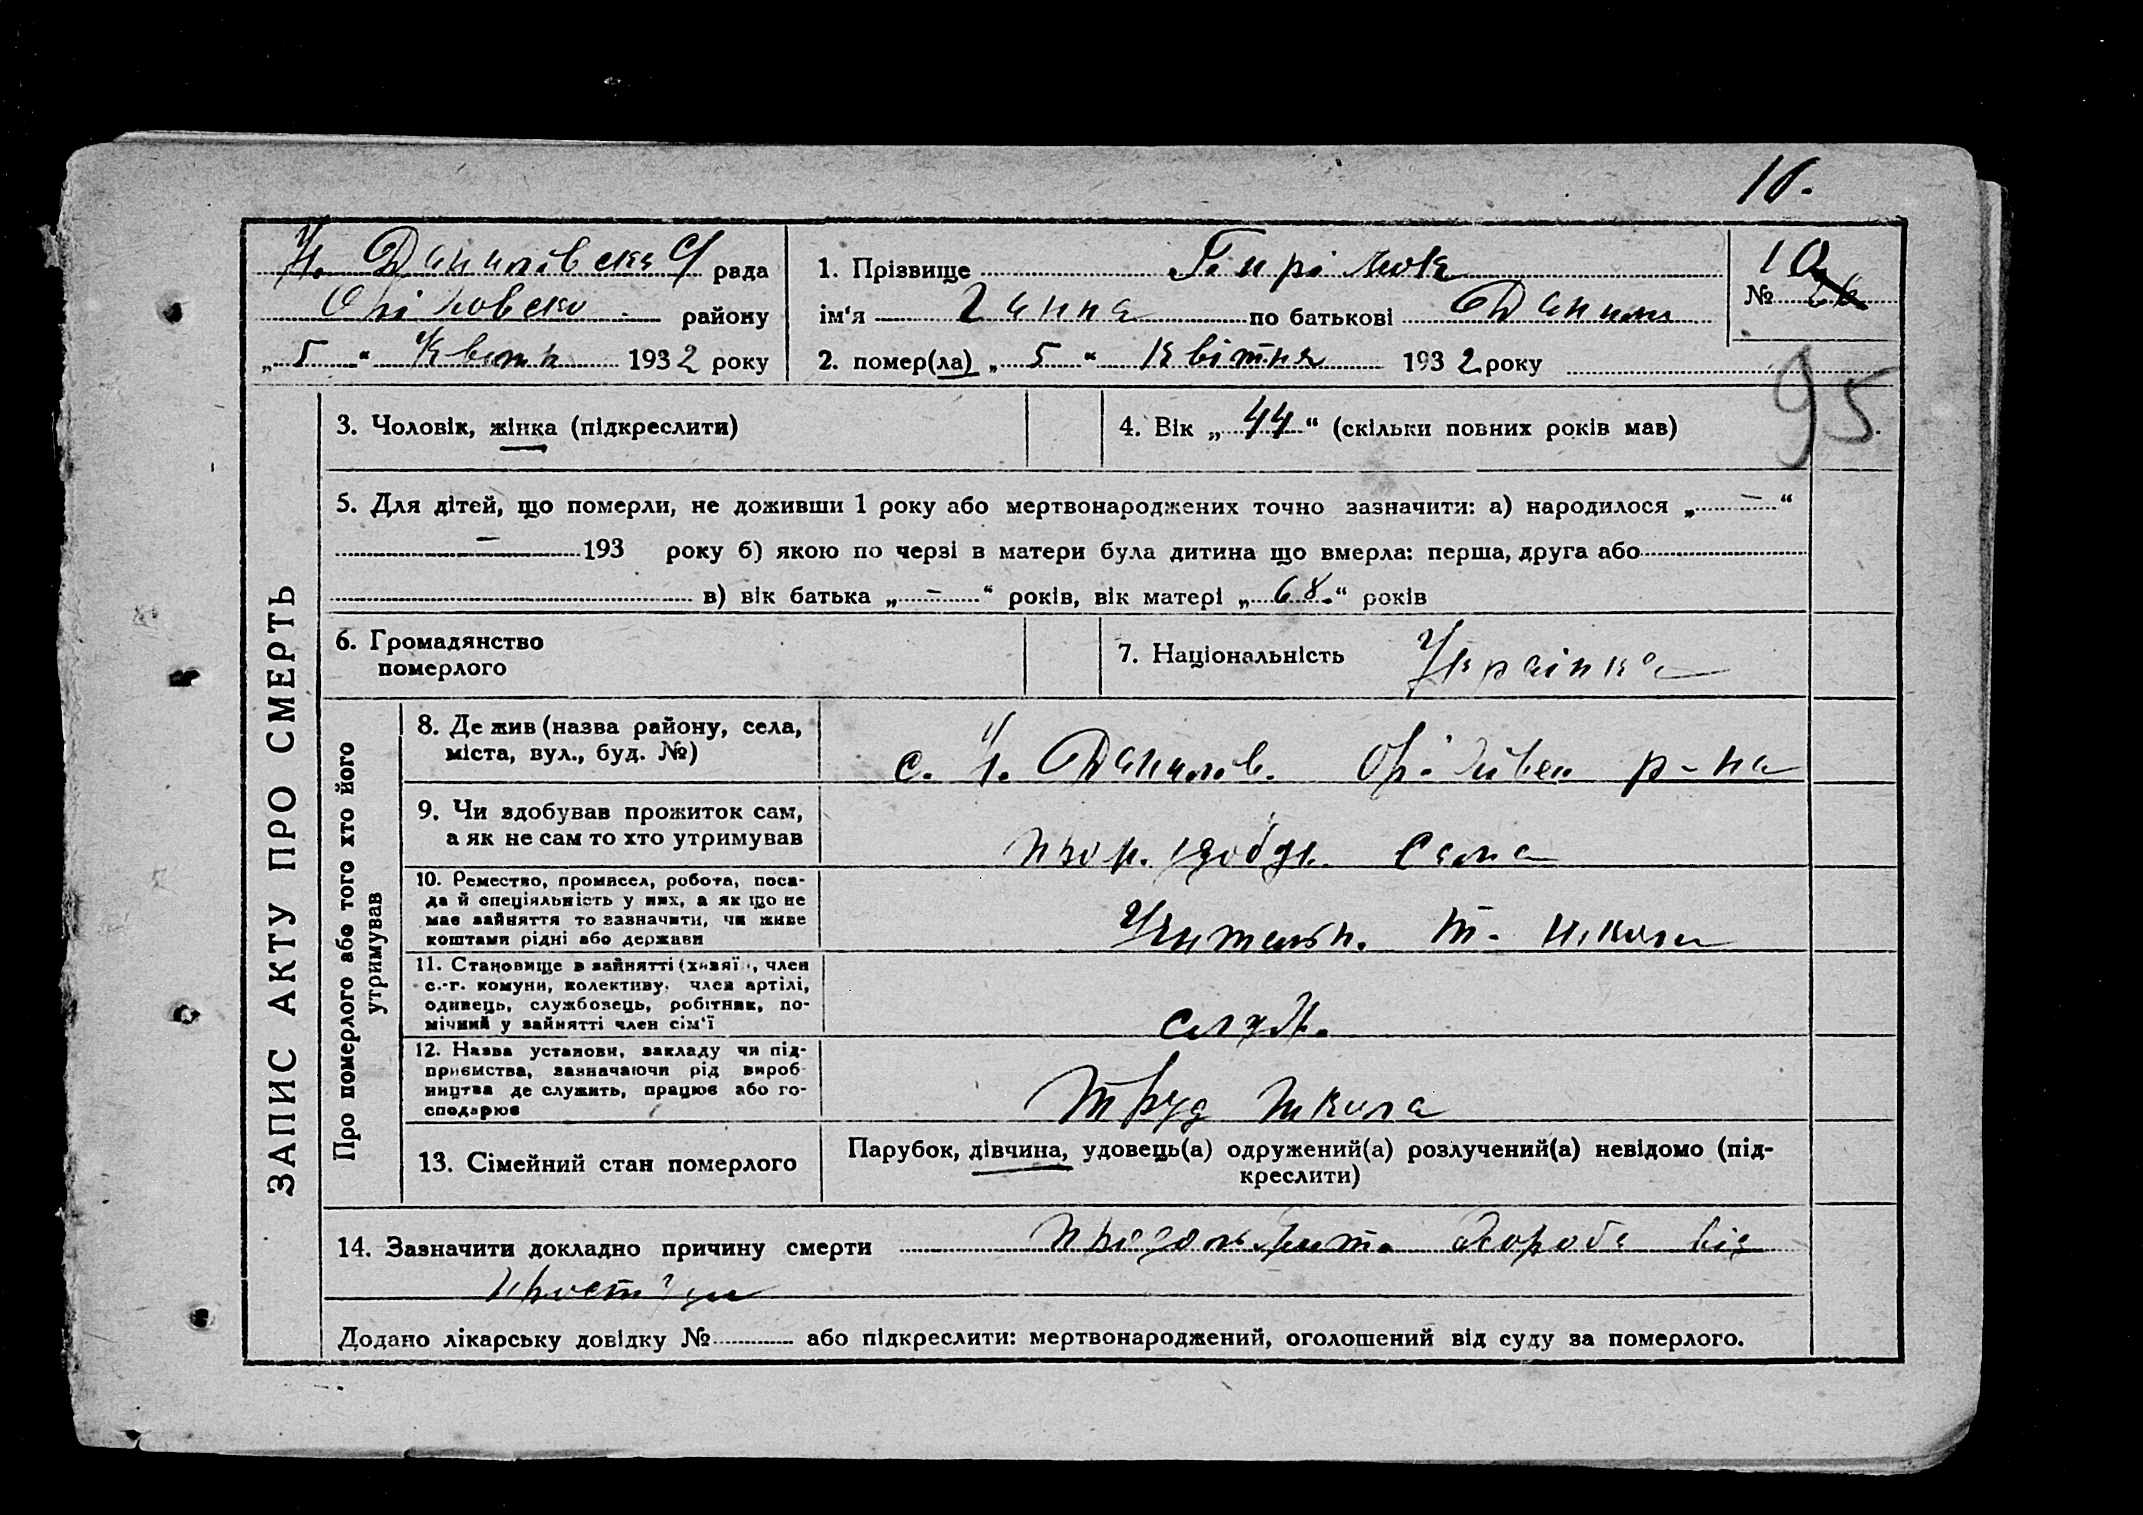 10.
Н. Данилівська с/рада
Оріховско району
„5“ Квітн 1932 року
1. Прізвище
ім'я Ганна по батькові Данил
2. помер(ла) „5“ квітня 1932 року
10
№ 26
95
3. Чоловік, жінка (підкреслити)
4. Вік „44“ (скільки повних років мав)
5. Для дітей, що померли, не доживши 1 року або мертвонароджених точно зазначити: а) народилося „–“
– 193 року б) якою по черзі в матери була дитина що вмерла: перша, друга або
в) вік батька „–“ років, вік матері „68.“ років
6. Громадянство
померлого
7. Національність Українка
ЗАПИС АКТУ ПРО СМЕРТЬ
Про померлого або того хто його
утримував
8. Де жив (назва району, села,
міста, вул., буд. №)
с. Н. Данилів. Оріхівськ р-на
9. Чи здобував прожиток сам,
а як не сам то хто утримував
прож. здобув. сама
10. Ремество, промисел, робота, поса-
да й спеціяльність у них, а як що не
має зайняття то зазначити, чи живе
коштами рідні або держави
Учительн. т. школи
11. Становище в зайнятті (хазяїн, член
с.-г. комуни, колективу, член артілі,
одинець, службовець, робітник, по-
мічний у зайнятті член сім'ї
служ.
12. Назва установи, закладу чи під-
приємства, зазначаючи рід вироб-
ництва де служить, працює або го-
сподарює
Труд школа
13. Сімейний стан померлого
Парубок, дівчина, удовець(а) одружений(а) розлучений(а) невідомо (під-
креслити)
14. Зазначити докладно причину смерти хороба від
простуди
Додано лікарську довідку № або підкреслити: мертвонароджений, оголошений від суду за померлого.